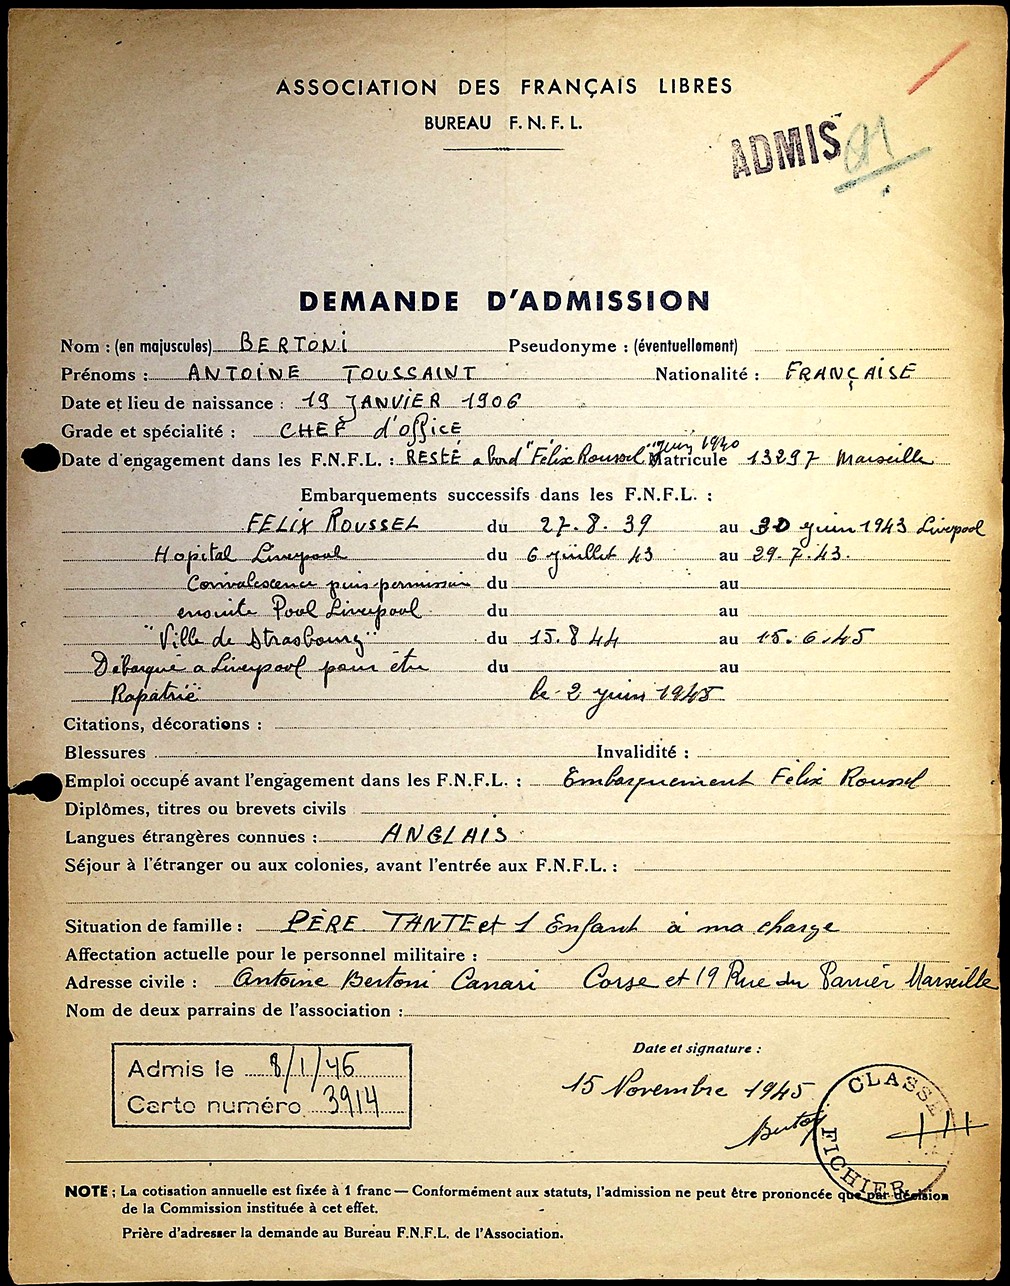 ASSOCIATION DES FRANÇAIS LIBRES
BUREAU F.N.F.L.
ADMIS
DEMANDE D'ADMISSION
Nom : (en majuscules) BERTONI Pseudonyme : (éventuellement)
Prénoms : ANTOINE TOUSSAINT Nationalité : FRANÇAISE
Date et lieu de naissance : 19 JANVIER 1906
Grade et spécialité : CHEF d'office
Date d'engagement dans les F.N.F.L. : RESTÉ a bord "Félix Roussel" juin 1940 Matricule 13297 Marseille
Embarquements successifs dans les F.N.F.L. :
FELIX ROUSSEL du 27.8.39 au 30 juin 1943 Liverpool
Hopital Liverpool du 6 juillet 43 au 29.7.43.
Convalescence puis permission du au
ensuite Pool Liverpool du au
"Ville de Strasbourg" du 15.8 44 au 15.6.45
Débarqué a Liverpool pour être du au
Rapatrié le 2 juin 1945
Citations, décorations :
Blessures Invalidité :
Emploi occupé avant l'engagement dans les F.N.F.L. : Embarquement Félix Roussel
Diplômes, titres ou brevets civils
Langues étrangères connues : ANGLAIS
Séjour à l'étranger ou aux colonies, avant l'entrée aux F.N.F.L. :
Situation de famille : PÈRE TANTE et 1 Enfant à ma charge
Affectation actuelle pour le personnel militaire :
Adresse civile : Antoine Bertoni Canari Corse et 19 Rue du Panier Marseille
Nom de deux parrains de l'association :
Date et signature :
Admis le 8/1/46
Carte numéro 3914
15 Novembre 1945
CLASSE
FICHIER
NOTE ; La cotisation annuelle est fixée à 1 franc — Conformément aux statuts, l'admission ne peut être prononcée que par décision
de la Commission instituée à cet effet.
Prière d'adresser la demande au Bureau F.N.F.L. de l'Association.